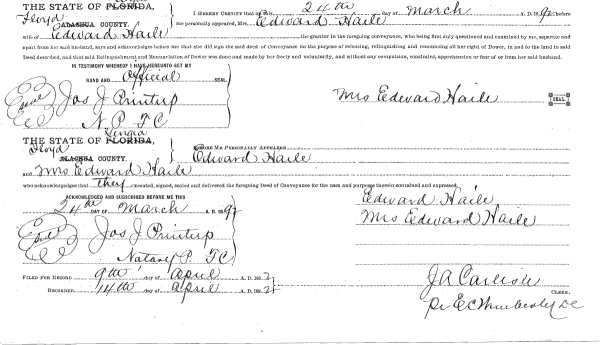 THE STATE OF FLORIDA,
Floyd
ALACHUA COUNTY.
I HEREBY CERTIFY That on this 24th day of March A. D. 1892 before
me personally appeared, Mrs. Edward Haile
wife of Edward Haile the grantor in the foregoing conveyance, who being first duly questioned and examined by me, separate and
apart from her said husband, says and acknowledges before me that she did sign the said deed of Conveyance for the purpose of releasing, relinquishing and renouncing all her right of Dower, in and to the land in said
Deed described, and that said Relinquishment and Renunciation of Dower was done and made by her freely and voluntarily, and without any compulsion, constraint, apprehension or fear of or from her said husband.
IN TESTIMONY WHEREOF I HAVE HEREUNTO SET MY
HAND AND Official SEAL
Seal
Jos J Printup
N. P. F C
Mrs Edward Haile
SEAL
Georgia
THE STATE OF FLORIDA,
Floyd
ALACHUA COUNTY.
BEFORE ME PERSONALLY APPEARED
Edward Haile
and Mrs Edward Haile
who acknowledges that they executed, signed, sealed and delivered the foregoing Deed of Conveyance for the uses and purposes therein contained and expressed
ACKNOWLEDGED AND SUBSCRIBED BEFORE ME THIS
24th DAY OF March A. D. 1892
Edward Haile
Mrs Edward Haile
Seal
Jos J Printup
Notary P. F C
FILED FOR RECORD 9th day of April A. D. 1892
RECORDED 14th day of April A. D. 1892
J A Carlisle
CLERK.
Pr E C Wimberly DC